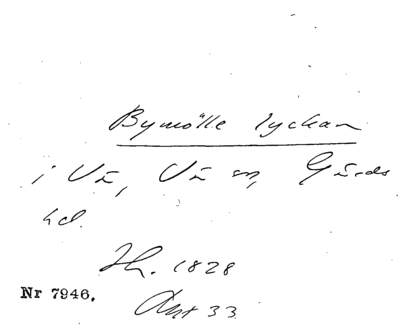 Bymölle lyckan
i Vä, Vä sn, Gärds
hd.
1828
Nr 7946.
Akt 33